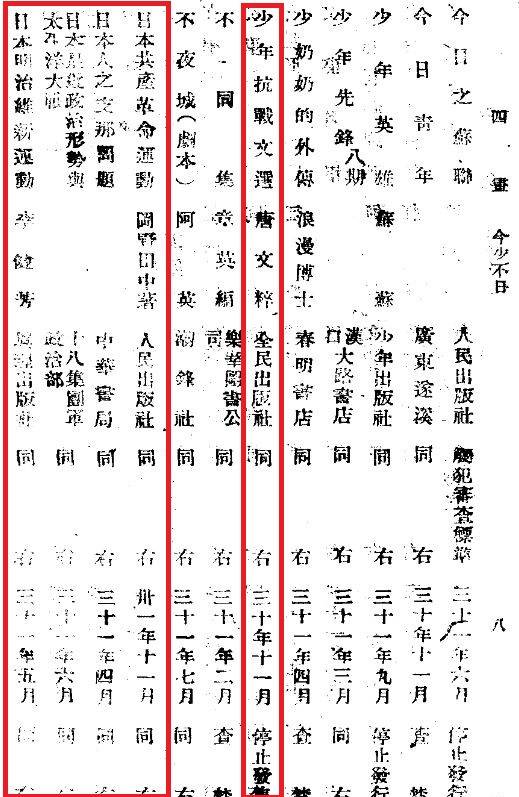 四畫 今少不日 八
今日之蘇聯 人民出版社 觸犯審查標準 三十一年六月 停止發行
今日青年 廣東遂溪 同右 三十年十一月 查禁
少年英雄 蘇蘇 少年出版社 同右 三十一年九月 停止發行
少年先鋒八期 漢口大路書店 同右 三十一年三月 同右
少奶奶的外傳 浪漫博士 春明書店 同右 三十一年四月 查禁
少年抗戰文選 唐文粹 全民出版社 同右 三十年十一月 停止發
不同集 章英編 樂華圖書公司 同右 三十一年二月 查禁
不夜城(劇本) 阿英 潮鋒社 同右 三十一年七月 同右
日本共產革命運動 岡野田中著 人民出版社 同右 卅一年十一月 同右
日本人之支那問題 中華書局 同右 三十一年四月 同右
日本最近政治形勢與太平洋大戰 十八集團軍政治部 同右 三十一年六月 同右
日本明治維新運動 李健芳 出版社 同右 三十一年五月 同右